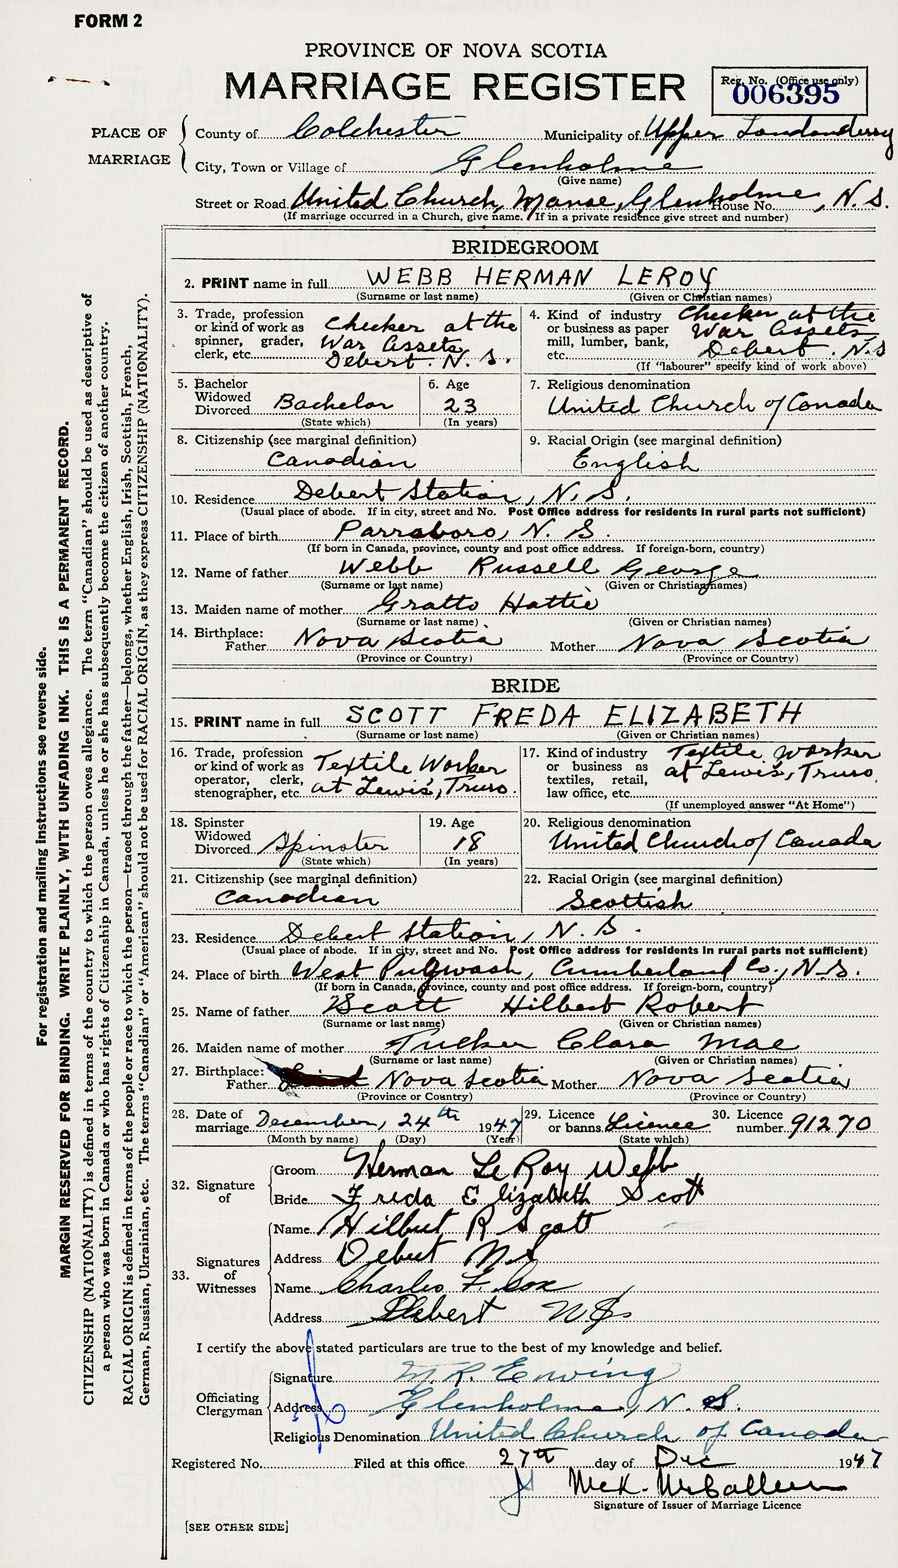 FORM 2
PROVINCE OF NOVA SCOTIA
MARRIAGE REGISTER
Reg. No. (Office use only)
006395
PLACE OF MARRIAGE
County of Colchester Municipality of Upper Londonderry
City, Town or Village of Glenholme
(Give name)
Street or Road United Church, Manse, Glenholme House No. , N. S.
(If marriage occurred in a Church, give name. If in a private residence give street and number)
BRIDEGROOM
2. PRINT name in full WEBB HERMAN LEROY
(Surname or last name) (Given or Christian names)
3. Trade, profession or kind of work as spinner, grader, clerk, etc. Checker at the War Assets Debert. N. S.
4. Kind of industry or business as paper mill, lumber, bank, etc. Checker at the War Assets Debert. N.S
(If "labourer" specify kind of work above)
5. Bachelor Widowed Divorced Bachelor
(State which)
6. Age 23
(In years)
7. Religious denomination
United Church of Canada
8. Citizenship (see marginal definition)
Canadian
9. Racial Origin (see marginal definition)
English
10. Residence Debert Station, N. S.
(Usual place of abode. If in city, street and No. Post Office address for residents in rural parts not sufficient)
11. Place of birth Parrsboro, N. S.
(If born in Canada, province, county and post office address. If foreign-born, country)
12. Name of father Webb Russell George
(Surname or last name) (Given or Christian names)
13. Maiden name of mother Gratto Hattie
(Surname or last name) (Given or Christian names)
14. Birthplace: Father Nova Scotia Mother Nova Scotia
(Province or Country) (Province or Country)
BRIDE
15. PRINT name in full SCOTT FREDA ELIZABETH
(Surname or last name) (Given or Christian names)
16. Trade, profession or kind of work as operator, clerk, stenographer, etc. Textile Worker at Lewis', Truro.
17. Kind of industry or business as textiles, retail, law office, etc. Textile Worker at Lewis', Truro.
(If unemployed answer "At Home")
18. Spinster Widowed Divorced Spinster
(State which)
19. Age 18
(In years)
20. Religious denomination
United Church of Canada
21. Citizenship (see marginal definition)
Canadian
22. Racial Origin (see marginal definition)
Scottish
23. Residence Debert Station, N. S.
(Usual place of abode. If in city, street and No. Post Office address for residents in rural parts not sufficient)
24. Place of birth West Pugwash, Cumberland Co., N.S.
(If born in Canada, province, county and post office address. If foreign-born, country)
25. Name of father Scott Hilbert Robert
(Surname or last name) (Given or Christian names)
26. Maiden name of mother Tucker Clara Mae
(Surname or last name) (Given or Christian names)
27. Birthplace: Father Nova Scotia Mother Nova Scotia
(Province or Country) (Province or Country)
28. Date of marriage December, 24th 1947
(Month by name) (Day) (Year)
29. Licence or banns Licence
(State which)
30. Licence number 91270
32. Signature of
Groom Herman LeRoy Webb
Bride Freda Elizabeth Scott
33. Signatures of Witnesses
Name Hilbert R Scott
Address Debert N S
Name Charles F. Cox
Address Debert N S
I certify the above stated particulars are true to the best of my knowledge and belief.
Officiating Clergyman
Signature M. R. Ewing
Address Glenholme, N. S.
Religious Denomination United Church of Canada
Registered No. Filed at this office 27th day of Dec 1947
McK. McCallum
Signature of Issuer of Marriage Licence
[SEE OTHER SIDE]
For registration and mailing instructions see reverse side.
MARGIN RESERVED FOR BINDING. WRITE PLAINLY, WITH UNFADING INK. THIS IS A PERMANENT RECORD.
CITIZENSHIP (NATIONALITY) is defined in terms of the country to which the person owes allegiance. The term "Canadian" should be used as descriptive of
a person who was born in Canada or who has rights of Citizenship in Canada, unless he or she has subsequently become the citizen of another country.
RACIAL ORIGIN is defined in terms of the people or race to which the person—traced through the father—belongs, whether English, Irish, Scottish, French,
German, Russian, Ukrainian, etc. The terms "Canadian" or "American" should not be used for RACIAL ORIGIN, as they express CITIZENSHIP (NATIONALITY).